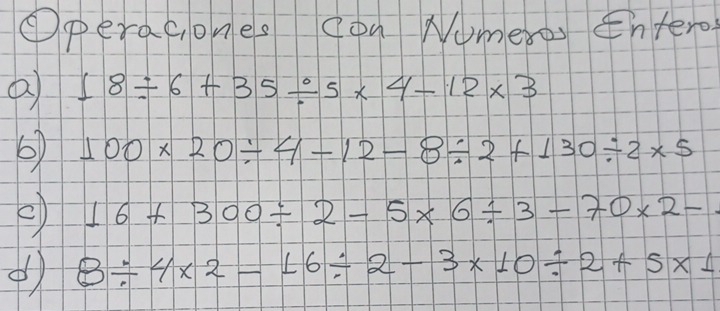 Operaciones Con Numeros Enteros
a) 18÷6+35÷5×4-12×3
b) 100×20÷4-12-8÷2+130÷2×5
c) 16+300÷2-5×6÷3-70×2-
d) 8÷4×2-16÷2-3×10÷2+5×1